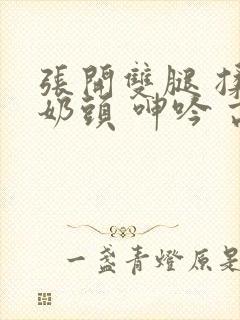 張開雙腿 揉
奶頭 呻吟
一盞青燈原是